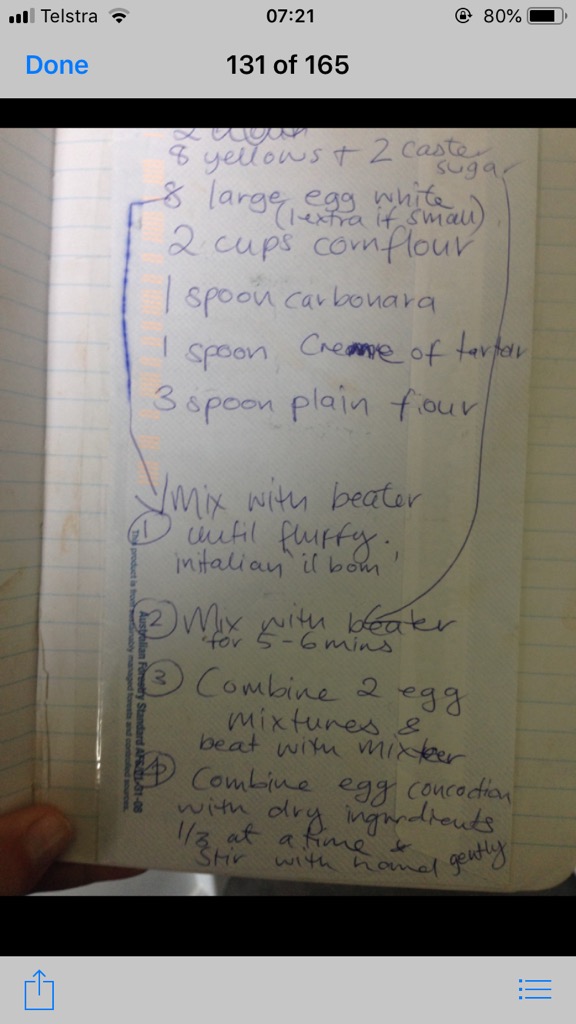 Telstra 07:21 80%
Done 131 of 165
8 yellows + 2 caster
sugar
8 large egg white
(1 extra if small)
2 cups cornflour
1 spoon carbonara
1 spoon Creme of tartar
3 spoon plain flour
Mix with beater
1 until fluffy.
initalian "il bom"
2 Mix with beater
for 5-6 mins
3 Combine 2 egg
mixtures &
beat with mixer
4 Combine egg concoction
with dry ingredients
1/3 at a time &
Stir with hand gently
Australian Forestry Standard AFS/01-31-08
This product is from sustainably managed forests and controlled sources.